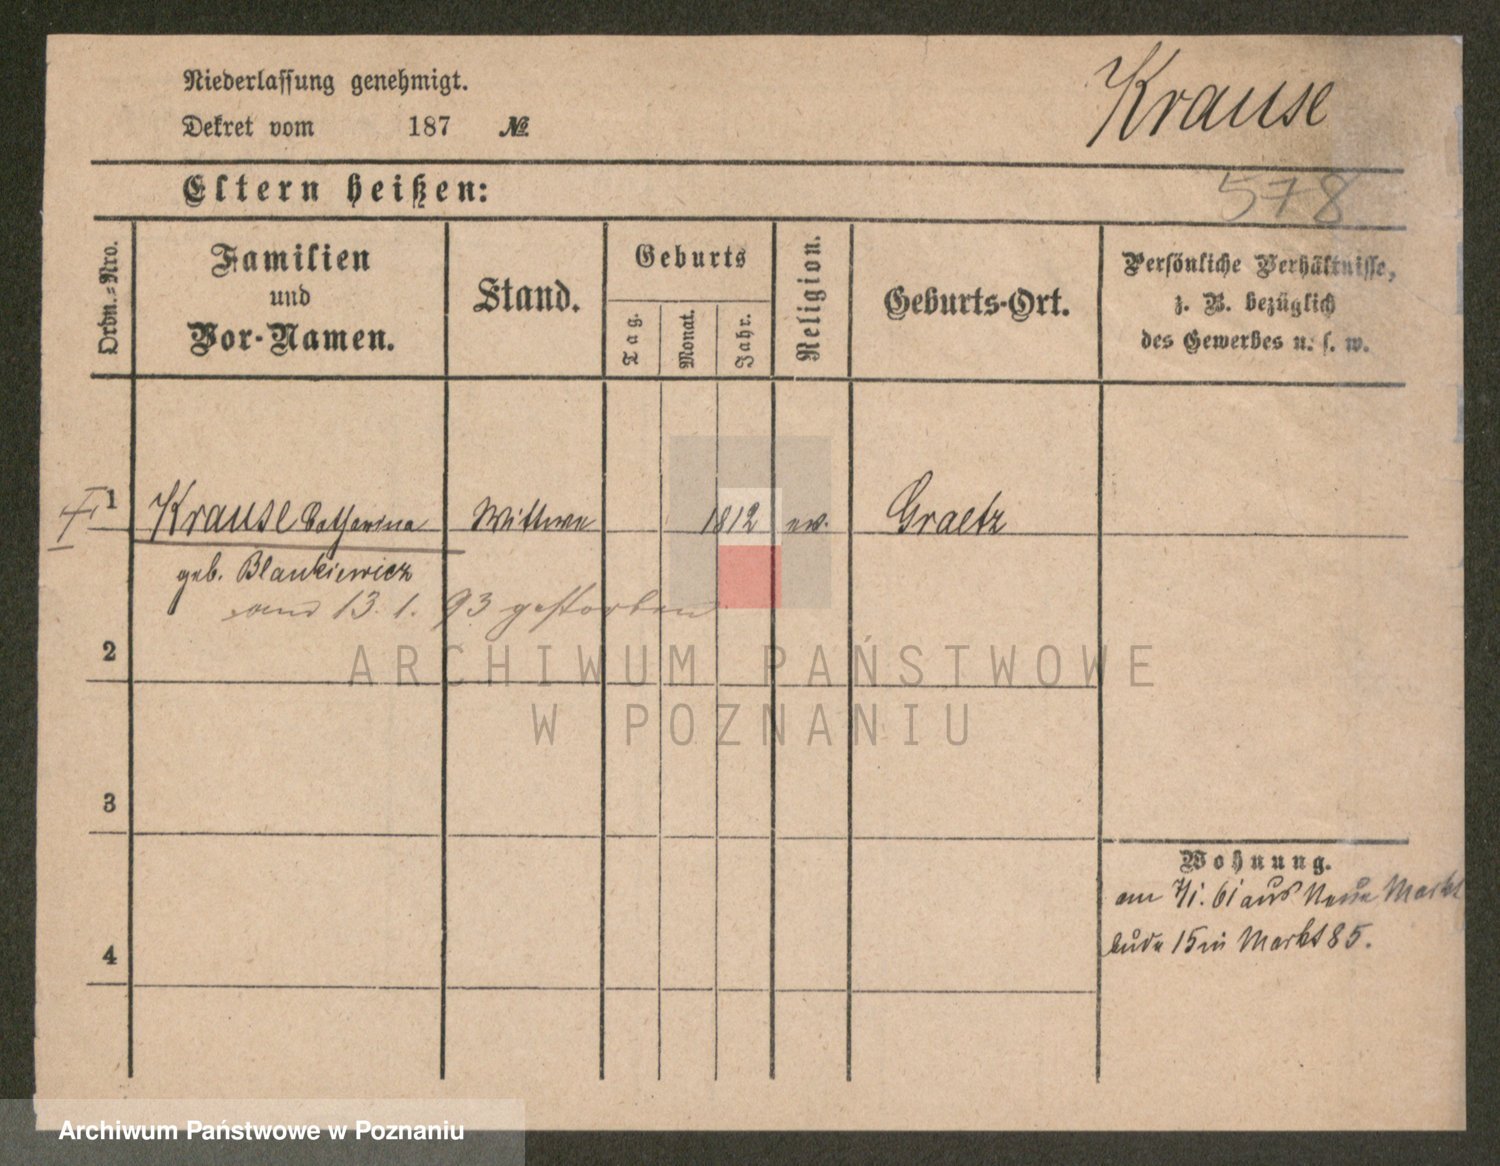 Niederlassung genehmigt.
Krause
Dekret vom 187 №
Eltern heißen:
578
Ordn.-Nro.
Familien
und
Vor-Namen.
Stand.
Geburts
Tag.
Monat.
Jahr.
Religion.
Geburts-Ort.
Persönliche Verhältnisse,
z. B. bezüglich
des Gewerbes u. s. w.
1 Krause Catharina Wittwe 1812 ev. Graetz
geb. Blankiewicz
am 13. 1. 93 gestorben
2
ARCHIWUM PAŃSTWOWE
W POZNANIU
3
Wohnung.
am 7/1. 61 aus Neue Markt
bude 15 in Markt 85.
4
Archiwum Państwowe w Poznaniu